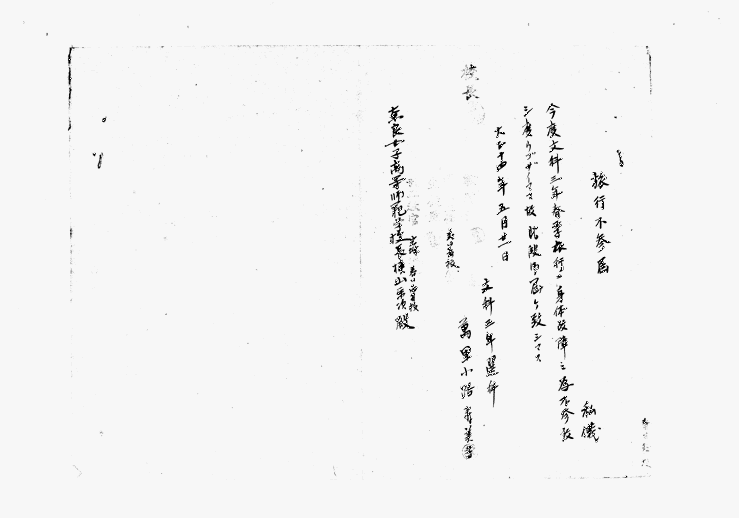 旅行不参届
私儀
今度文科三年春季旅行ニ身体故障ノ為不参致
シ度クゴザイマス故此段御届ケ致シマス
大正十四年五月廿一日
文科三年選科
萬里小路
奈良女子高等師範学校長横山栄次殿
校長